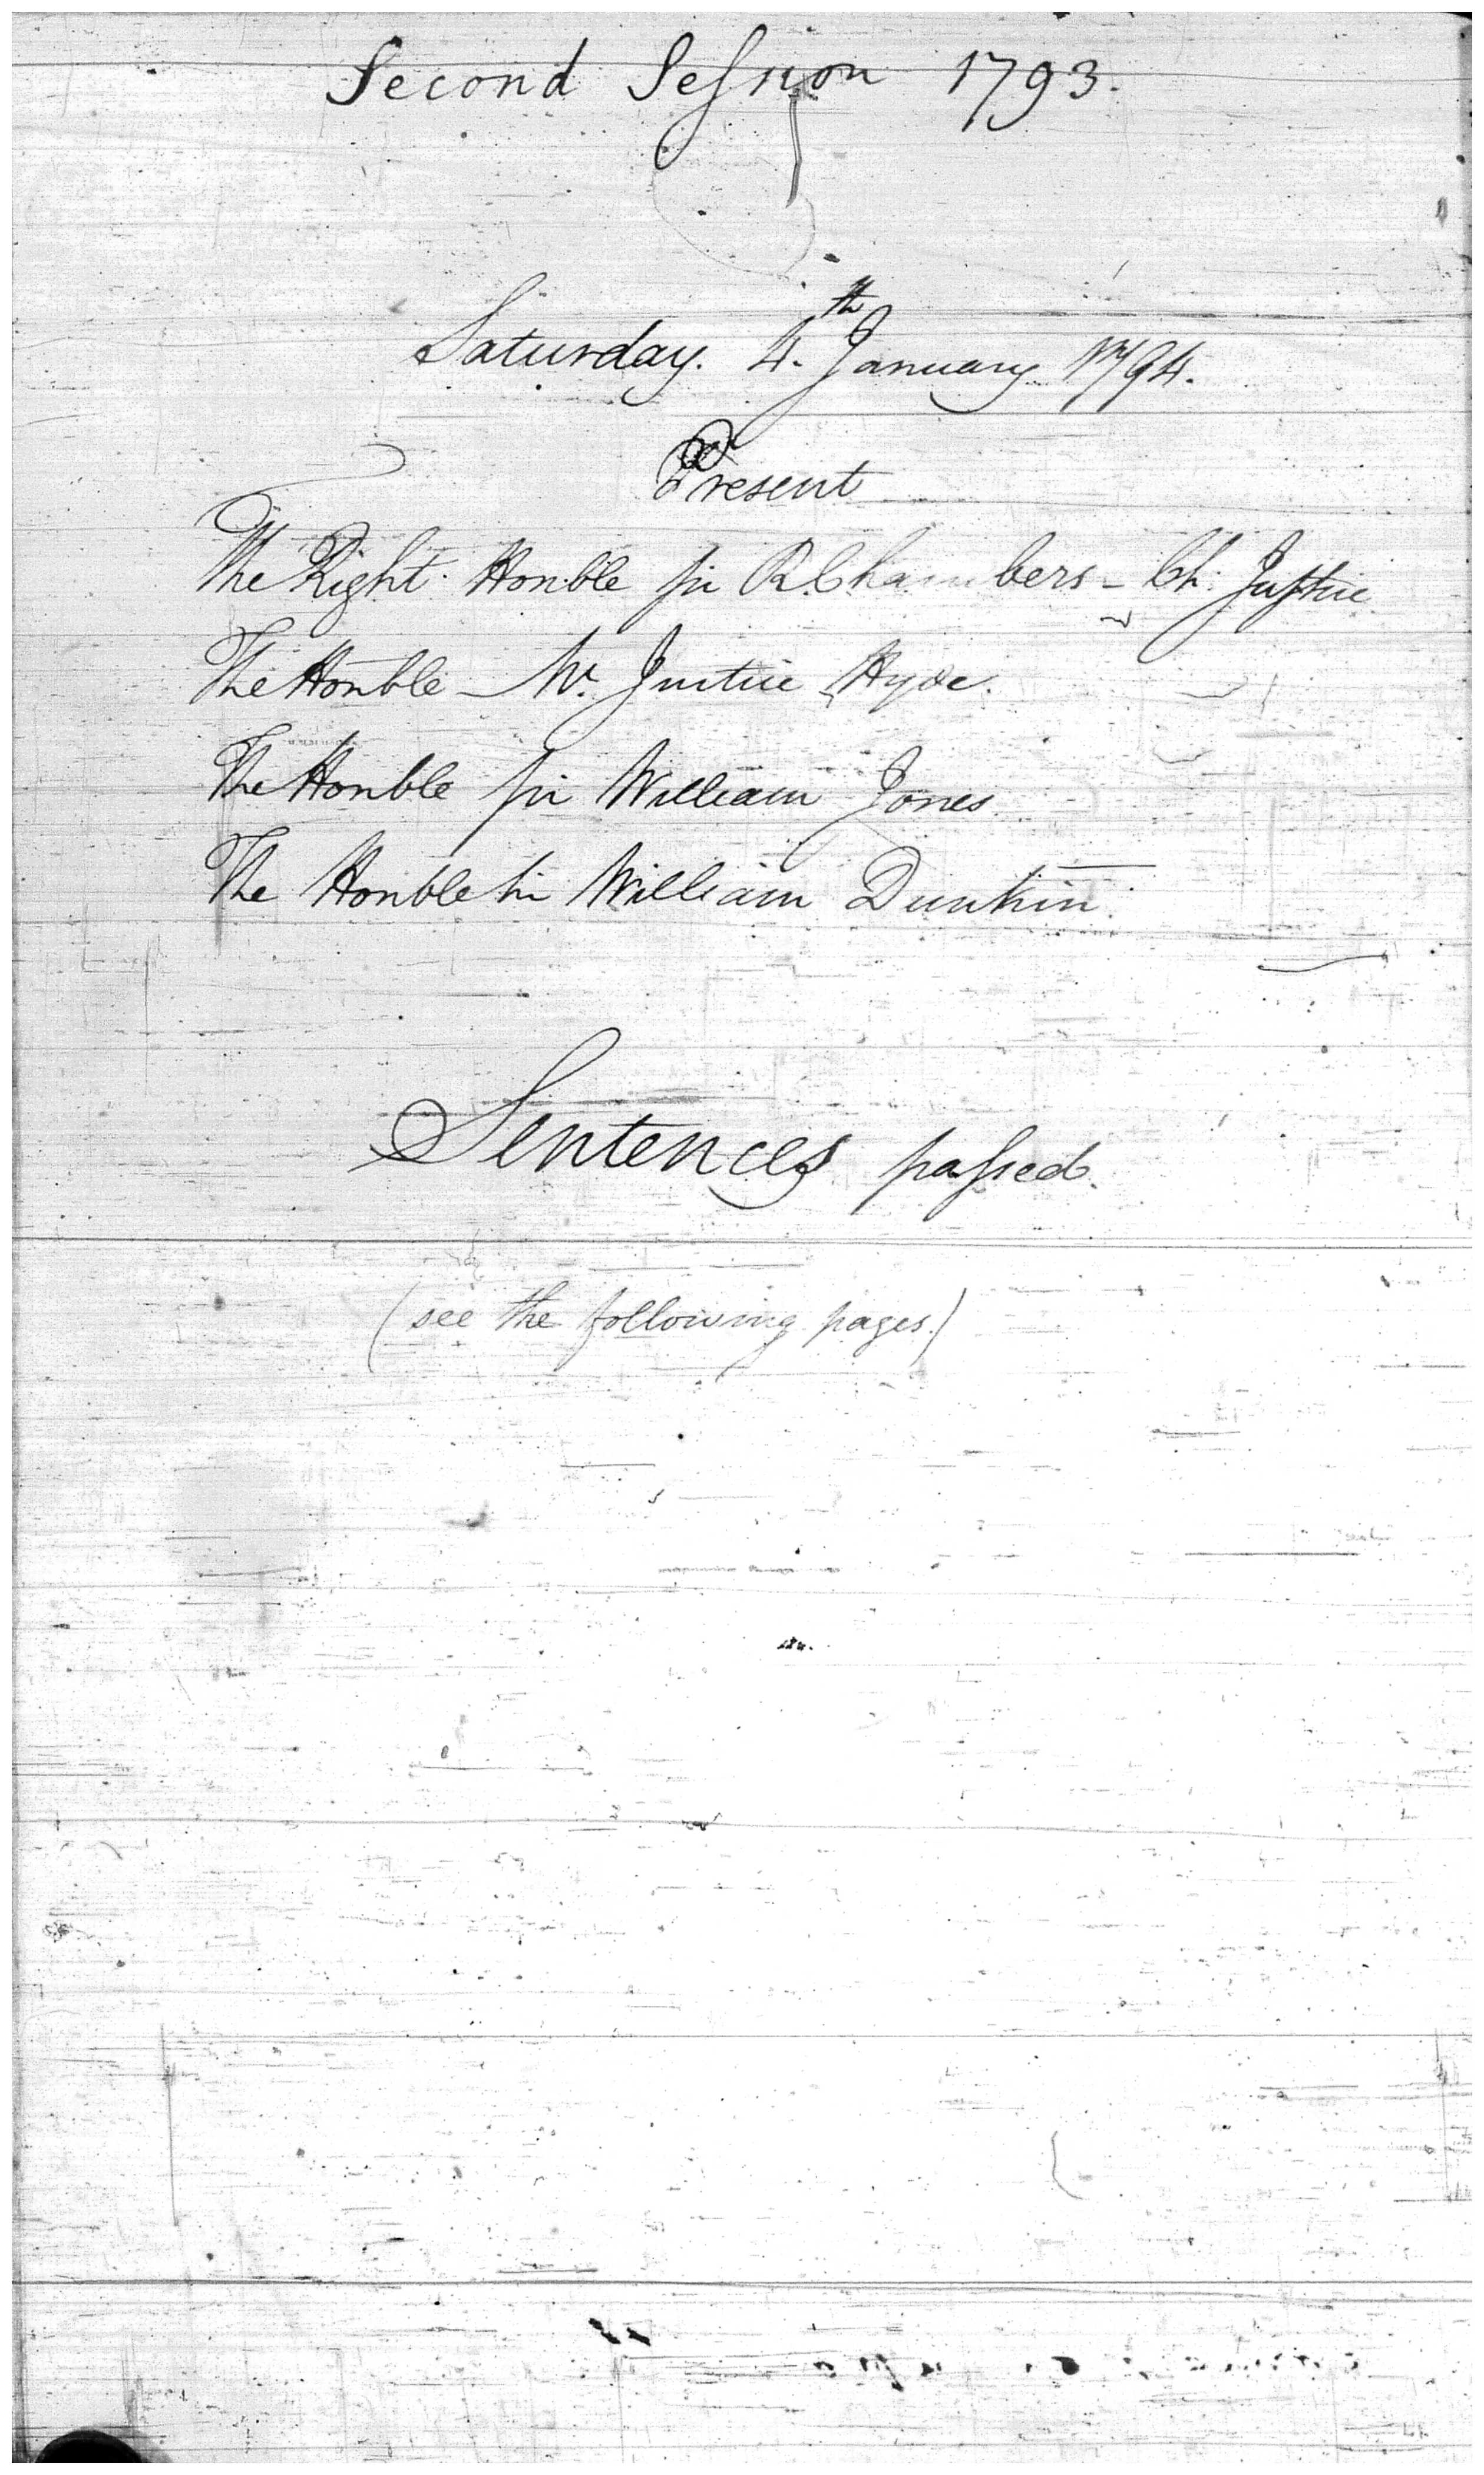 Second Seſsion 1793.
Saturday. 4.th January 1794.
Present
The Right. Honble Sir R. Chambers - Ch. Juſtice
The Honble - Mr. Justice Hyde.
The Honble Sir William Jones.
The Honble Sir William Dunkin.
Sentences paſsed.
(see the following pages.)